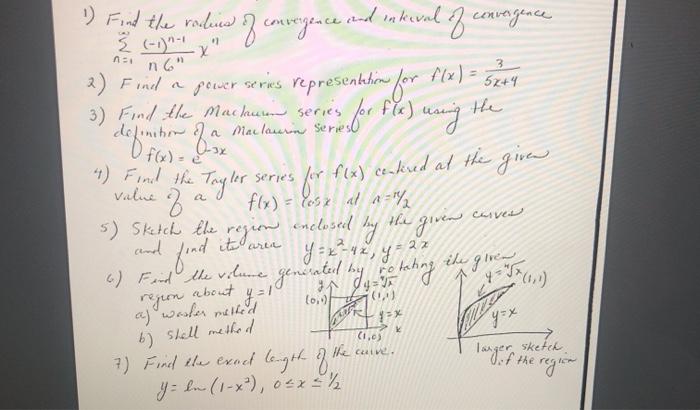 1) Find the radius of convergence and interval of convergence
∞ Σ n=1 (-1)^n-1 / n 6^n x^n
2) Find a power series representation for f(x) = 3 / 5x+4
3) Find the Maclaurin series for f(x) using the
definition of a Maclaurin series
f(x) = e^-3x
4) Find the Taylor series for f(x) centered at the given
value of a f(x) = cos x at a = π/2
5) Sketch the region enclosed by the given curves
and find its area y = x²-4x, y = 2x
6.) Find the volume generated by rotating the given
region about y = 1
a) washer method
b) shell method
y
(0,1)
(1,1)
y=x
x
(1,0)
(1,1)
y=x
larger sketch
of the region
7) Find the exact length of the curve.
y = ln (1-x²), 0≤x≤ 1/2